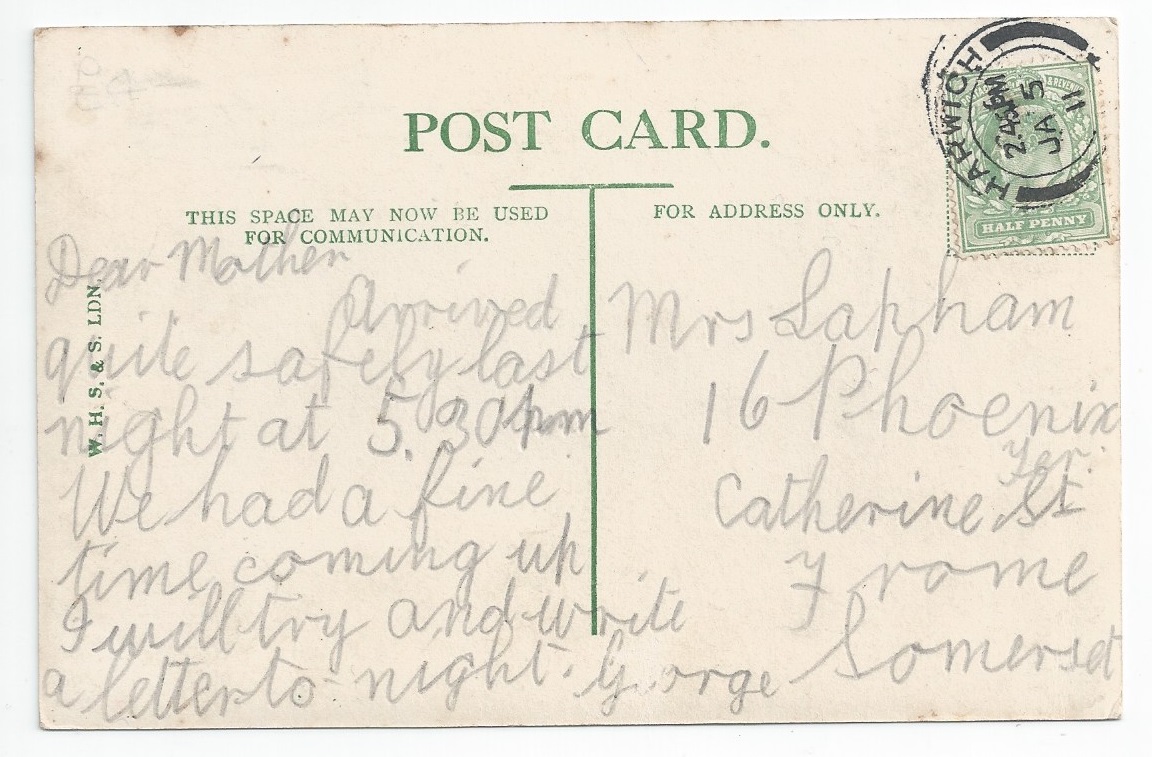 POST CARD.
THIS SPACE MAY NOW BE USED
FOR COMMUNICATION.
FOR ADDRESS ONLY.
W. H. S. & S. LDN.
HARWICH
2.45PM
JA 5
11
HALF PENNY
Dear Mother
Arrived
quite safely last
night at 5.30pm
We had a fine
time coming up
I will try and write
a letter to-night. George
Mrs Lapham
16 Phoenix
Ter.
Catherine St
Frome
Somerset